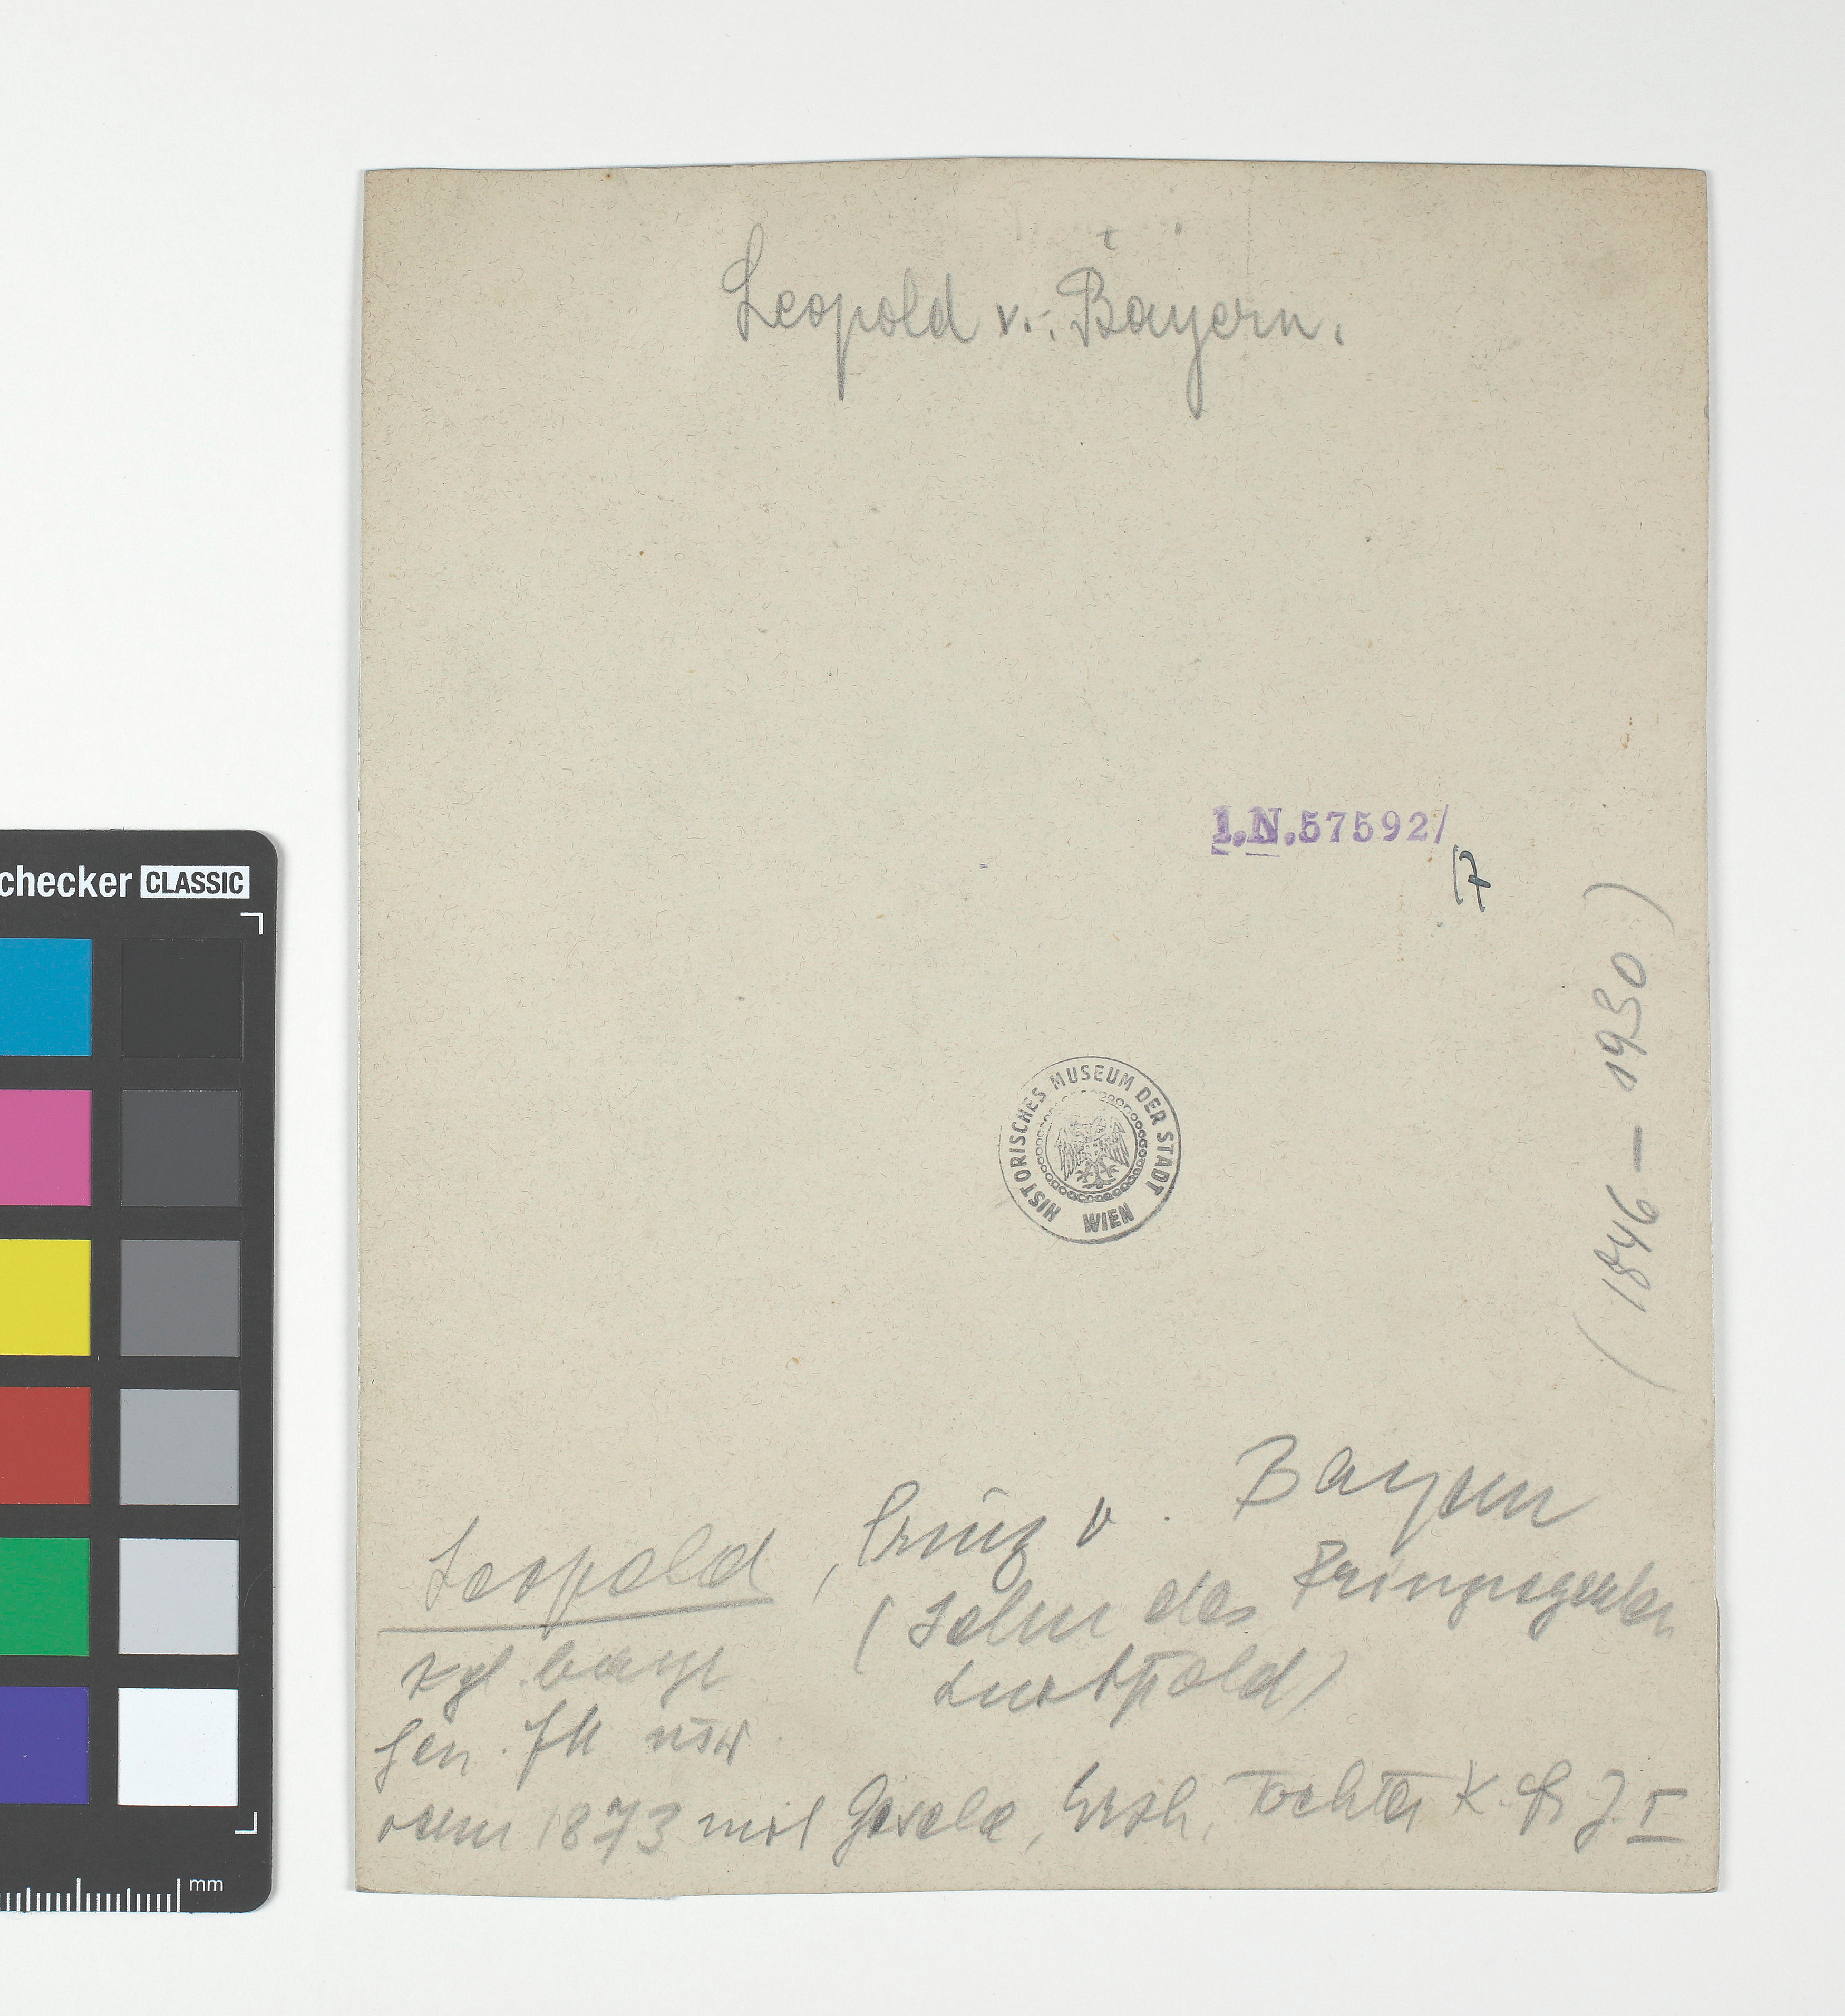 Leopold v. Bayern.
I.N.57592/
7
HISTORISCHES MUSEUM DER STADT WIEN
(1846 – 1930)
Leopold, Prinz v. Bayern
(Sohn des Prinzregenten
Luitpold)
kgl. bayr
Gen. FM usw
verm 1873 mit Gisela, Erzh, Tochter K. Fr. J. I
checker CLASSIC
mm